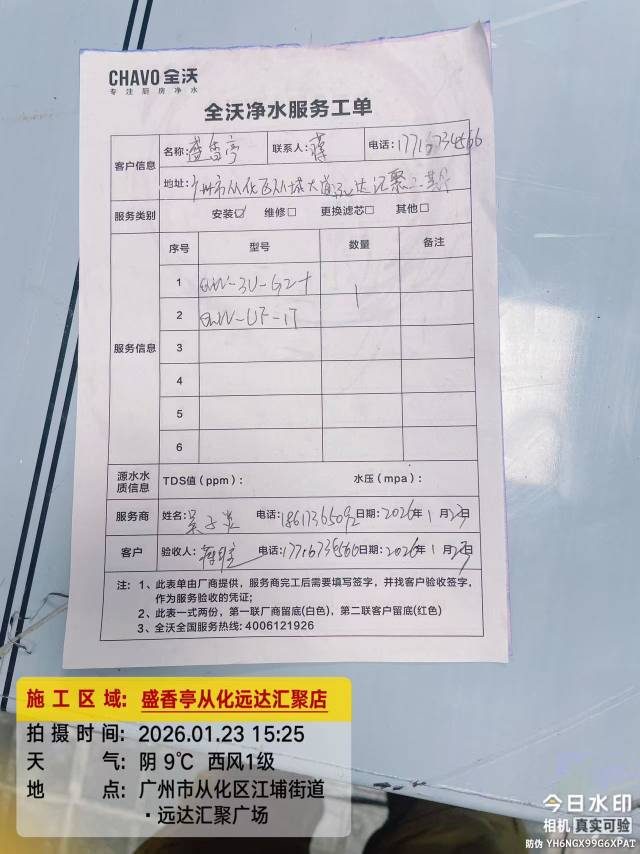 CHAVO 全沃
专注厨房净水
全沃净水服务工单
客户信息
名称: 盛香亭 联系人: 蒋 电话:
地址: 广州市从化区从城大道远达汇聚二其
服务类别 安装☑ 维修□ 更换滤芯□ 其他□
服务信息
序号 型号 数量 备注
1 QW-3U-G2+ 1
2 QW-UF-1T
3
4
5
6
源水水质信息 TDS值(ppm): 水压(mpa):
服务商 姓名: 电话: 18617365092 日期: 2026年1月23日
客户 验收人: 电话: 日期: 2026年1月23日
注: 1、此表单由厂商提供，服务商完工后需要填写签字，并找客户验收签字，
作为服务验收的凭证;
2、此表一式两份，第一联厂商留底(白色)，第二联客户留底(红色)
3、全沃全国服务热线: 4006121926
施工区域: 盛香亭从化远达汇聚店
拍摄时间: 2026.01.23 15:25
天气: 阴 9℃ 西风1级
地点: 广州市从化区江埔街道
·远达汇聚广场
今日水印
相机 真实可验
防伪 YH6NGX99G6XPAT